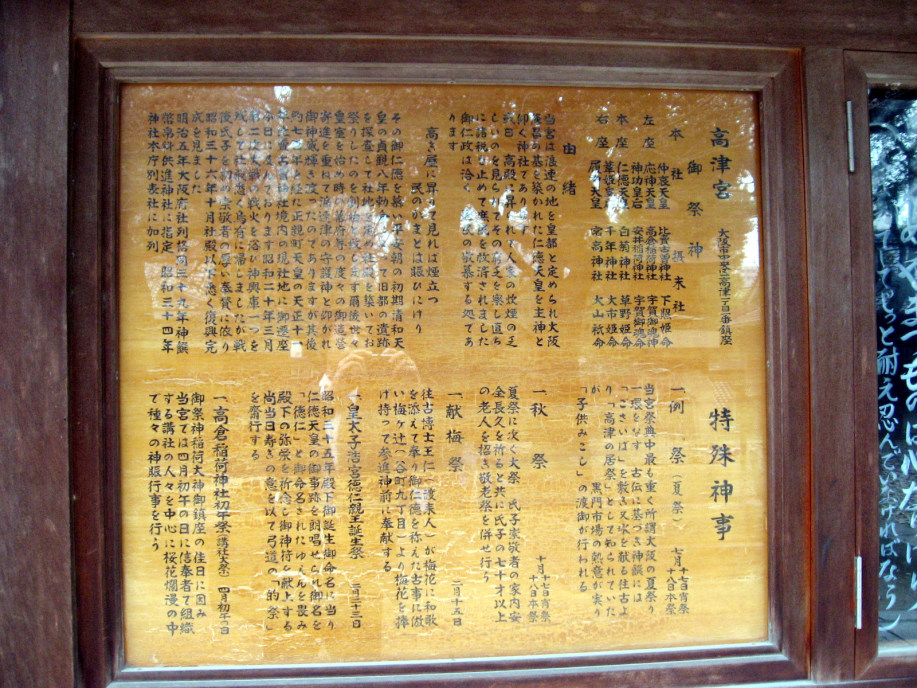 高津宮
大阪市中央区高津一丁目一番鎮座
御祭神
摂末社
本社
仲哀天皇
左座
応神天皇
神功皇后
本座
仁徳天皇
葦姫皇后
右座
履仲天皇
比売古曽神社 下照姫命
高倉稲荷神社 宇賀御魂神
安井稲荷神社 宇賀御魂命
白菊神社 草野姫命
千年神社 大市姫命
常高神社 大山祇命
由緒
当宮は浪速の地を皇都と定められ大阪
隆昌の基を築かれた仁徳天皇を主神と
仰ぐ神社であります
或日高殿に昇られて人家の炊煙の乏
しいのを見られてその窮乏を察し直ち
に諸税を止めて庶民を救済されました
御仁政は洽く万民の敬慕する処であ
ります
高き屋に昇りて見れば煙立つ
民のかまどは賑ひにけり
その御仁徳を慕い平安朝の初期清和天
皇の貞観八年勅命によって旧都の遺跡
を探査して社地を定め社殿を築いてお
祭りしたのを創始と致します爾後世々
皇室を始め時の幕府等の度々の御造営
寄進を重ねて浪速津の守護神と仰がれ
御神威輝き渡ったのでありますが其後
約七百年を経た正親町天皇の天正十一
今日に及んでおります昭和二十年三月
第二次大戦の戦火を浴び神輿庫一つを
残して社殿悉く烏有に帰しましたが戦
後氏子を初め崇敬者の厚い奉賛に依り
昭和三十六年十月社殿以下悉く復興完
成を見ました
明治五年大阪府社列格同三十九年神饌
幣帛料供進神社に指定 昭和三十四年
神社本庁別表社に加列
特殊神事
一例祭(夏祭) 七月 十七日宵祭 十八日本祭
当宮祭典中最も重く所謂大阪の夏祭り
の一環をなす 古伝に基づき神饌には
「ございば」を敷き又氷を献る仕古よ
り「高津の居祭」として知られていた
が 黒門市場の熱意が実り
「子供みこし」の渡御が行われる
一秋祭 十月 十七日宵祭 十八日本祭
夏祭に次ぐ大祭 氏子崇敬者の家内安
全長久を祈ると共に氏子の七十才以上
の老人を招き敬老祭を併せ行う
一献梅祭 二月十五日
往古博士王仁(渡来人)が梅花に和歌
を添えて奉り御仁徳を称えた古事に倣
い梅ヶ辻(谷町九丁目)より梅花を捧
け持って参進神前に奉献する
一皇太子浩宮徳仁親王誕生祭 二月二十三日
昭和三十五年殿下御誕生御命名に当り
仁徳天皇の御事跡を朗唱せられ御名を
「徳仁」と御命名されたゆえんを畏み
殿下の弥栄を祈念し御神符を献上する
尚当日寿ぎの意を以て弓道の「的祭」
を斎行する
一高倉稲荷神社初午祭(講社大祭) 四月初午日
御祭神稲荷大神御鎮座の佳日に因み
当宮では四月初午の日に信奉者で組織
する講社の人々を中心に桜花爛漫の中
で種々の神賑行事を行う
っと耐え忍んでいなければなら